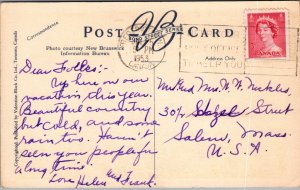 POST CARD
Correspondence
Photo courtesy New Brunswick
Information Bureau.
PM
1953
Address Only
TO HELP YOU
CANADA
Dear Folks:-
Up here on our
vacation this year.
Beautiful country
but cold, and some
rain too. Haven't
seen your people
along this time.
Love Helen and Frank.
Mr. and Mrs. W. W. Nickles,
30 1/4 Hazel Street
Salem, Mass.
U. S. A.